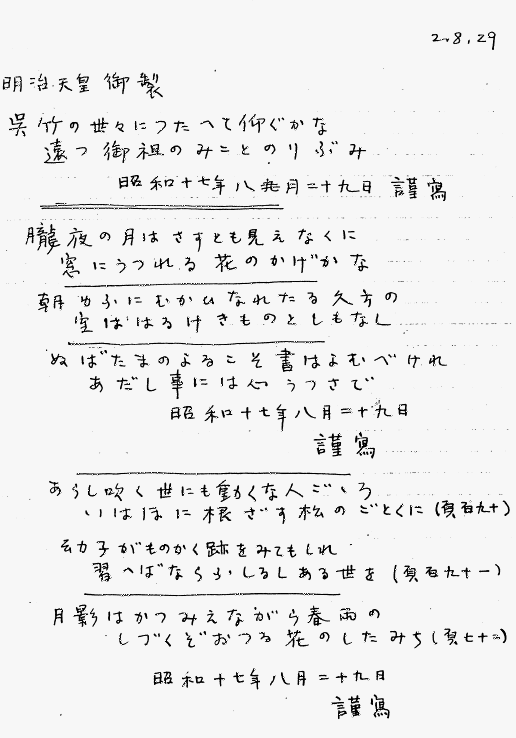 2.8.29
明治天皇御製
呉竹の世々につたへて仰ぐかな
遠つ御祖のみことのりぶみ
昭和十七年八月二十九日 謹寫
朧夜の月はさすとも見えなくに
窓にうつれる花のかげかな
朝ゆふにむかひなれたる久方の
空ははるけきものとしもなし
ぬばたまのよるこそ書はよむべけれ
あだし事には心うつさで
昭和十七年八月二十九日
謹寫
あらし吹く世にも動くな人ごゝろ
いはほに根ざす松のごとくに(頁百九十)
幼子がものかく跡をみてもしれ
習へばならふしるしある世を(頁百九十一)
月影はかつみえながら春雨の
しづくぞおつる花のしたみち(頁七十二)
昭和十七年八月二十九日
謹寫